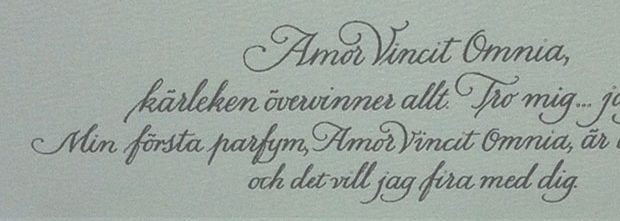 Amor Vincit Omnia,
kärleken övervinner allt. Tro mig...
Min första parfym, Amor Vincit Omnia, är
och det vill jag fira med dig.